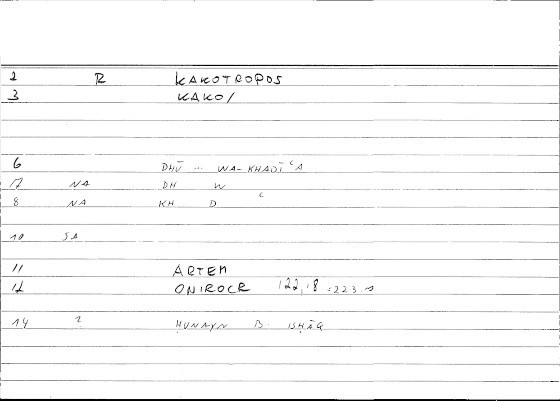 2 R KAKOTROPOS
3 KAKO/
6 DHŪ ... WA-KHADĪʿA
17 NA DH W
8 NA KH D ʿ
10 SA
11 ARTEM
12 ONIROCR 122,18 = 223.
14 2 ḤUNAYN B. ISḤĀQ